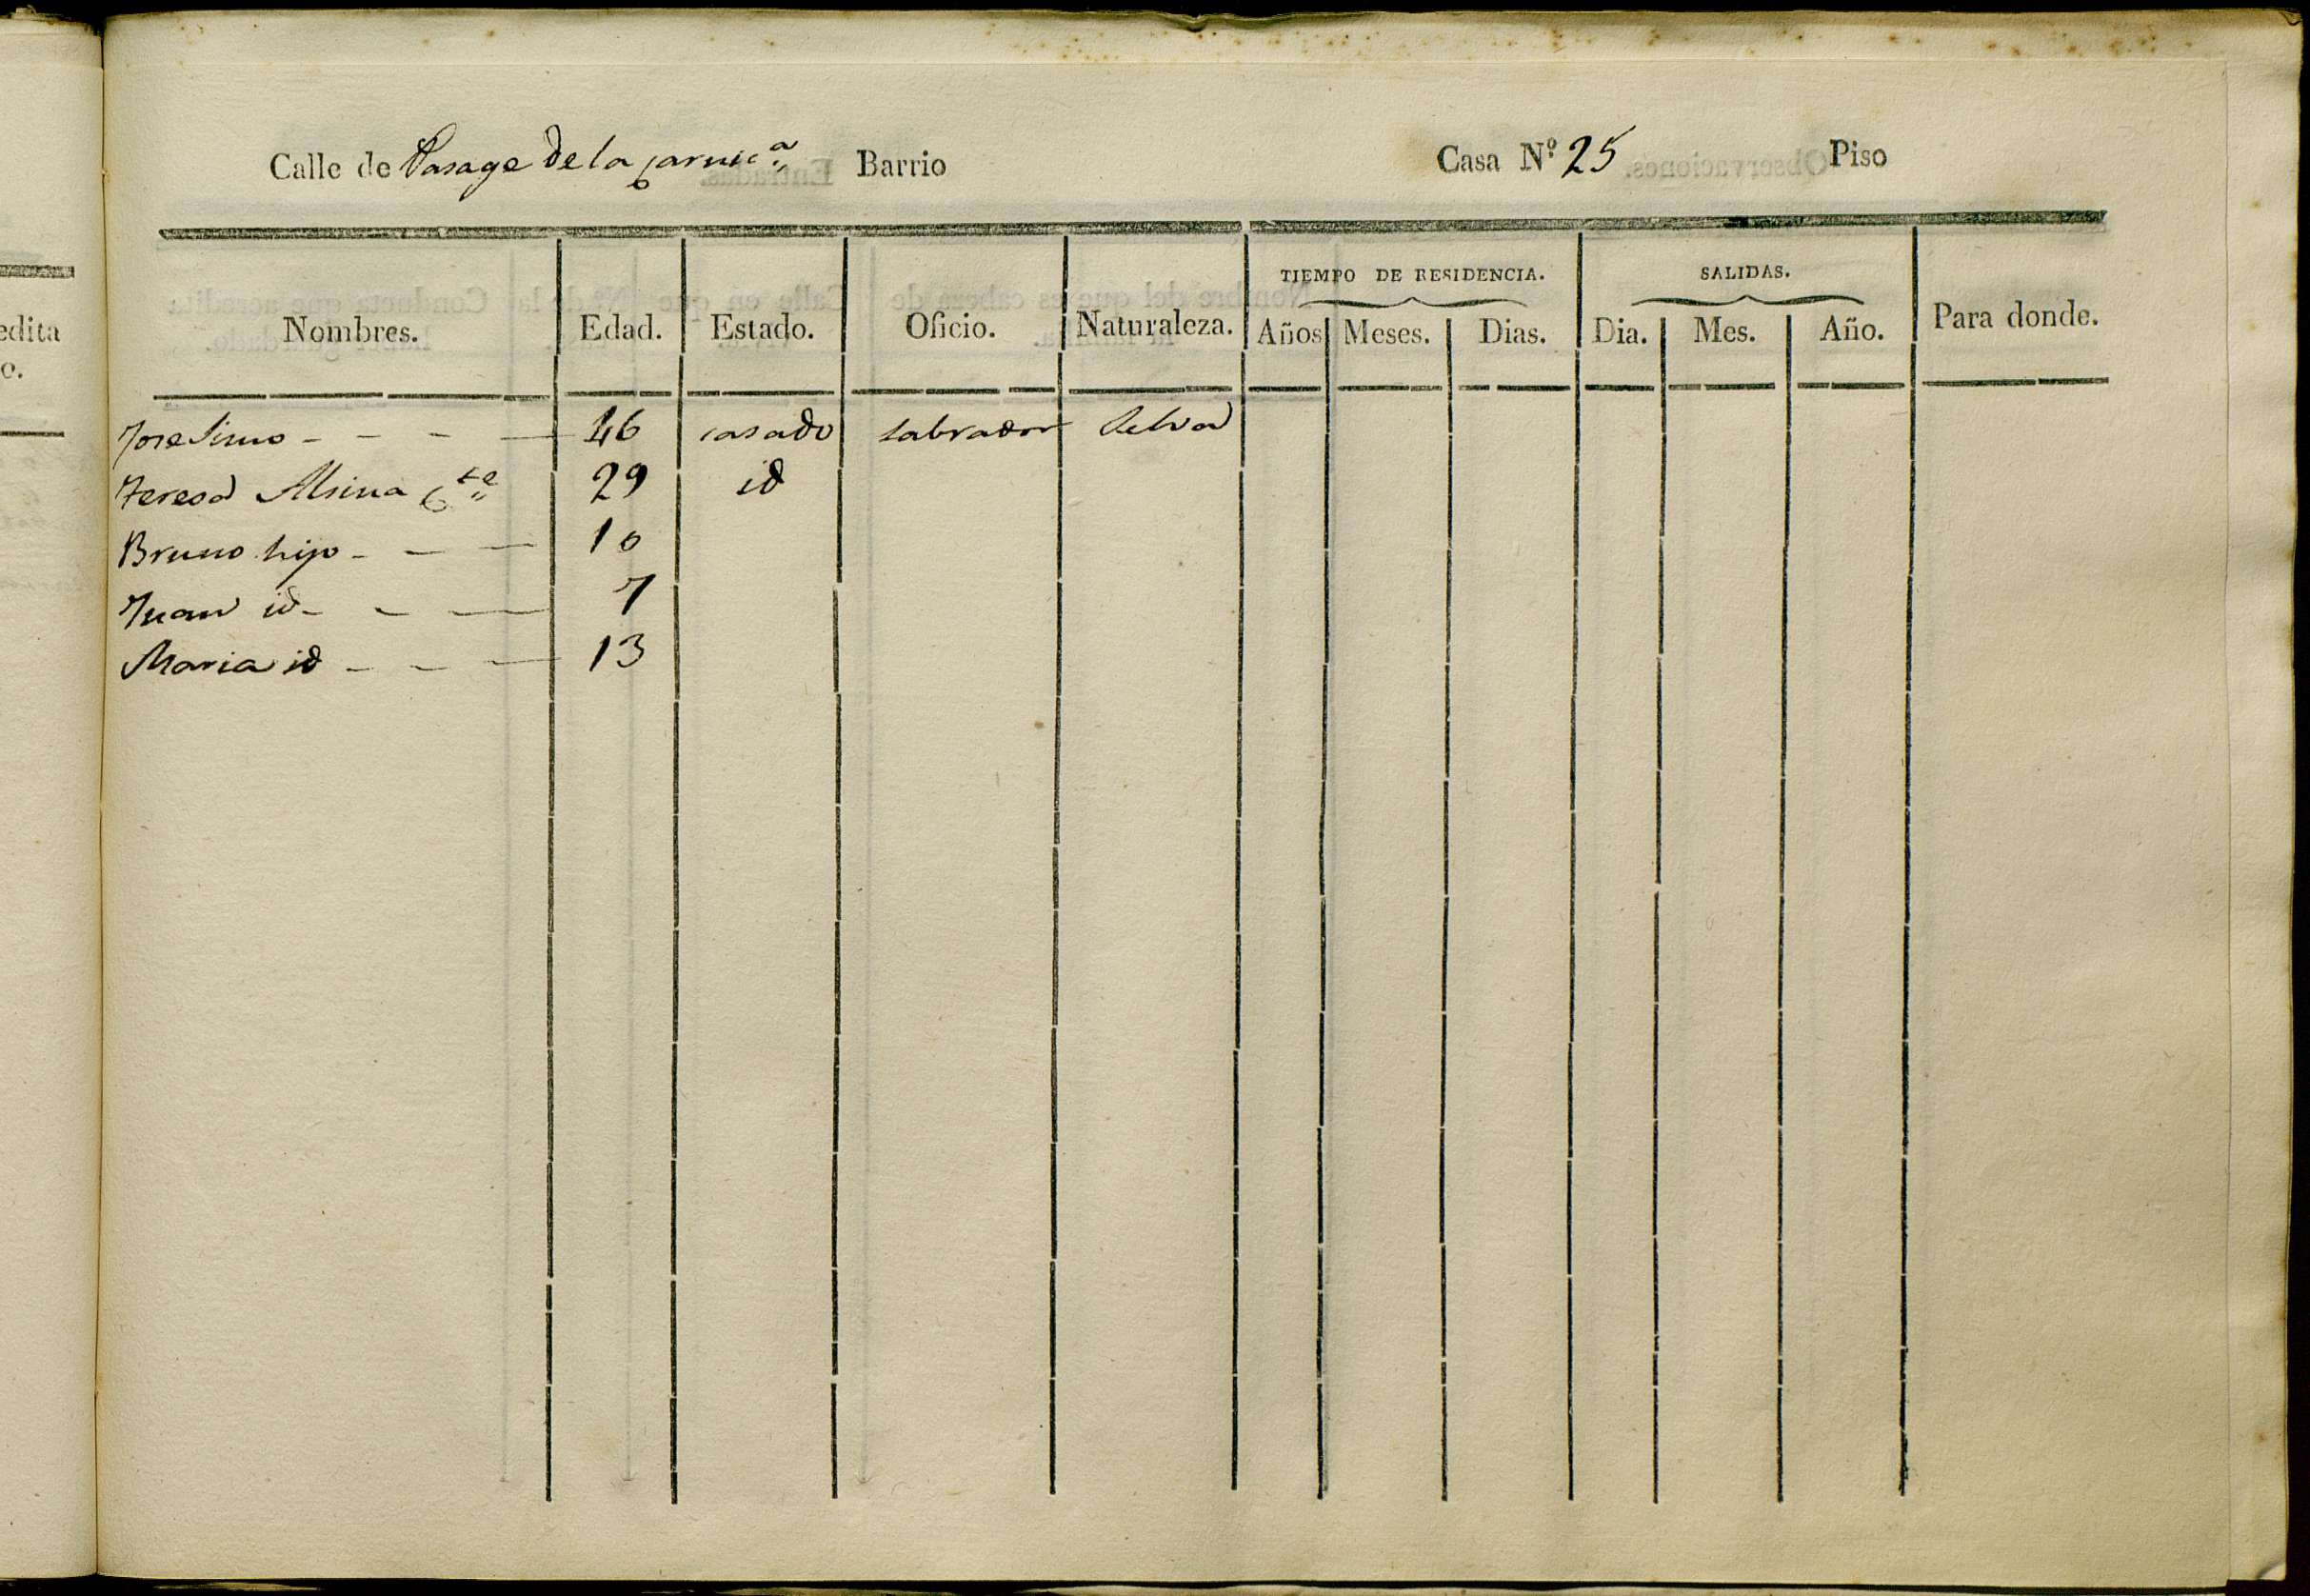 Calle de Pasage de la carnic.ª Barrio Casa N.º 25 Piso
TIEMPO DE RESIDENCIA. SALIDAS.
Nombres. Edad. Estado. Oficio. Naturaleza. Años Meses. Dias. Dia. Mes. Año. Para donde.
Jose Simo - - - — 46 casado labrador Selva
Teresa Alsina c.te 29 id
Bruno hijo - — — 10
Juan id - - — 7
Maria id - - — 13
edita
o.